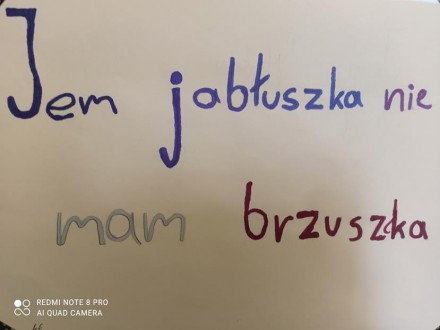 Jem jabłuszka nie
mam brzuszka
REDMI NOTE 8 PRO
AI QUAD CAMERA